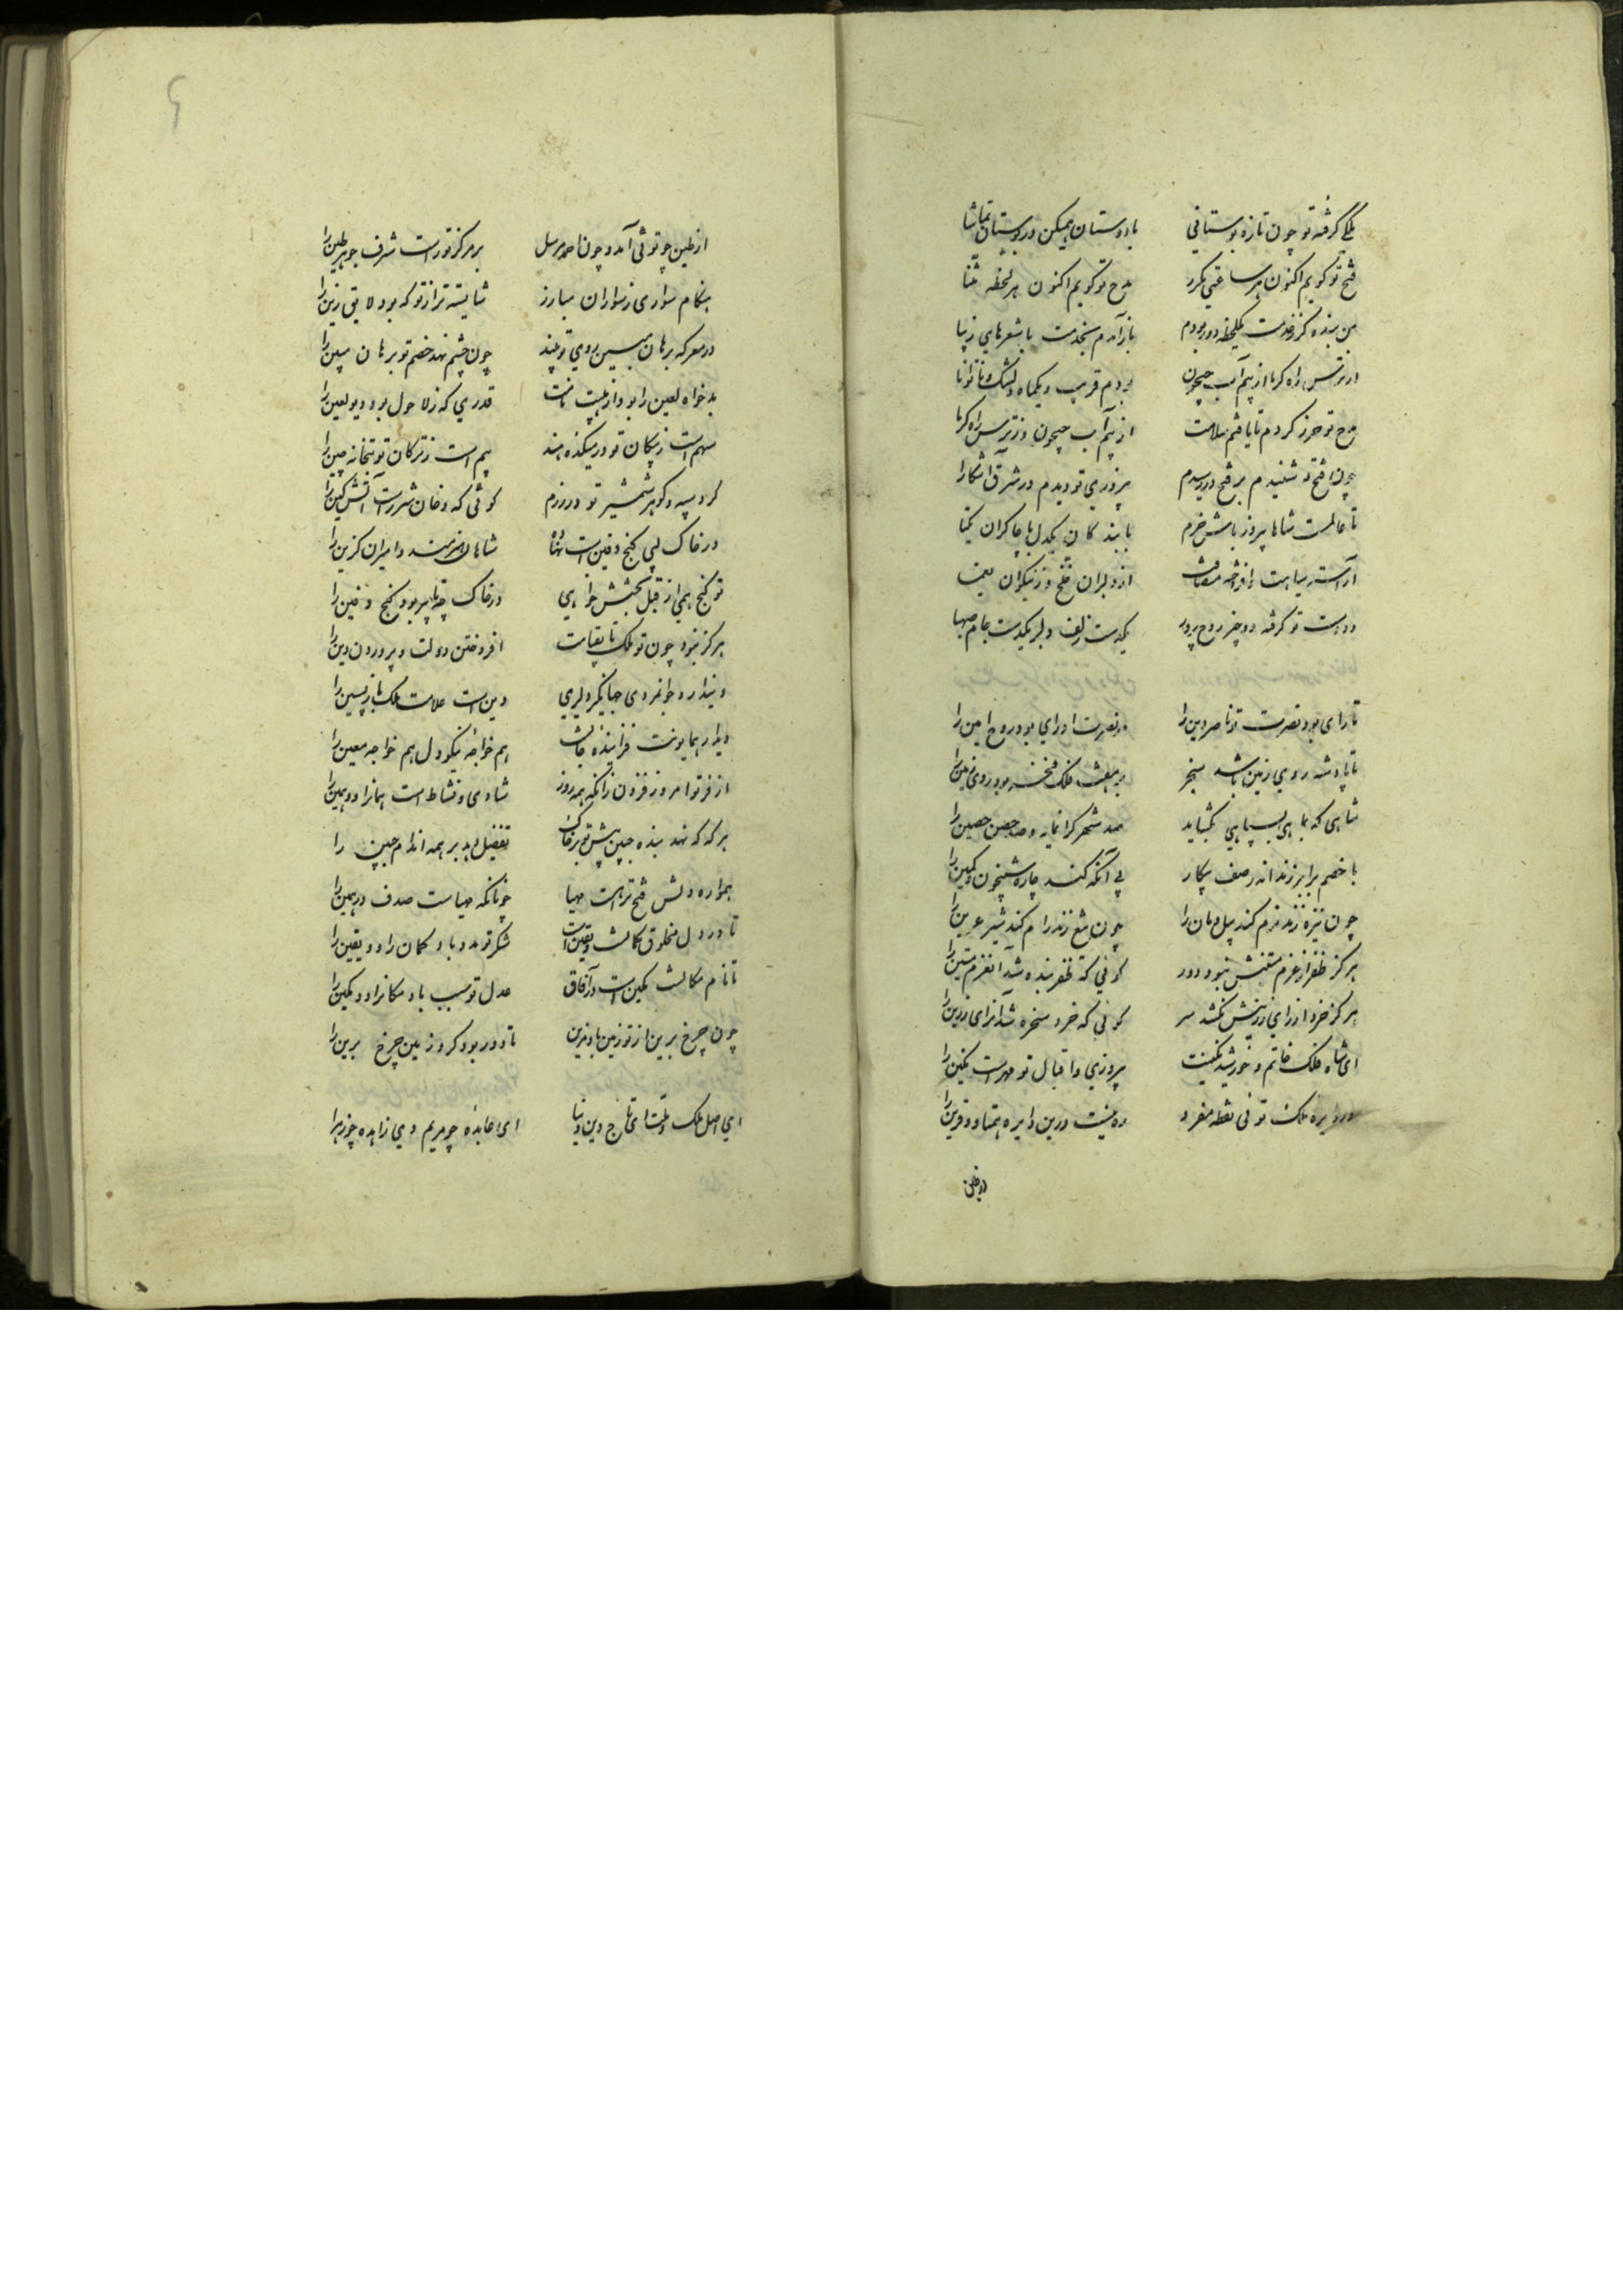 ملکی گرفته تو چون تازه بوستانی با دوستان همیکن در بوستان تماشا
فتح تو گویم اکنون هر ساعتی مکرر مدح تو گویم اکنون هر لحظه مثنا
من بنده کز خدمت یکلحظه دور بودم باز آمدم بخدمت با شعرهای زیبا
از ترس راه گرما از بیم آب جیحون بودم قریب یکماه دلتنگ و ناتوانا
مدح تو حرز کردم تا یافتم سلامت از بیم آب جیحون وز ترس راه گرما
چون فتح تو شنیدم بر فتح در رسیدم پیروزی تو دیدم در شرق آشکارا
تا عالمست شاها پیروز باش و خرم با بندگان یکدل با چاکران یکتا
آراسته سپاهت افراخته
از دلبران خلخ وز نیکوان یغما
دو دست تو گرفته دو چیز روح پرور یکدست زلف دلبر یکدست جام صهبا
تا رای بود نصرت تو ناصر دین را در نصرت او رای بود روح امین را
تا پادشه روی زمین باشد سنجر بر هفت فلک فخر بود روی زمین را
شاهی که بماهی بسپاهی بگشاید صد شهر گرانمایه و صد حصن حصین را
با خصم برابر زند اندر صف پیکار بی آنکه کند چاره شبیخون و کمین را
چون نیزه زند نرم کند پیل دمان را چون تیغ زند رام کند شیر عرین را
هرگز ظفر از عزم متینش نبود دور گوئی که ظفر بنده شد آن عزم متین را
هرگز خرد از رای رزینش نکشد سر گوئی که خرد سخره شد آن رای رزین را
ای شاه فلک خاتم و خورشید نگینت پیروزی و اقبال تو مهرست نگین را
در دایره ملک توئی نقطه مفرد ره نیست درین دایره همتا و قرین را
از طین چو توئی آمد و چون احمد مرسل بر مرکز تو راست شرف جوهر طین را
هنگام سواری ز سواران مبارز شایسته تر از تو که بود لایق زین را
در معرکه برهان مبین روی تو بیند چون چشم نهد خصم تو برهان مبین را
بدخواه لعین را بود از هیبت نامت قدری که ز لا حول بود دیو لعین را
سهم است ز پیکان تو در میکده هند بیم است ز ترکان تو بتخانه چین را
گرد سپه و گوهر شمشیر تو در رزم گوئی که دخان شررست آتش کین را
در خاک بسی گنج دفین است نهان شاهان هنرمند و امیران گزین را
تو گنج همی از قبل بخشش خواهی در خاک چه تاثیر بود گنج دفین را
هرگز نبود چون تو ملک تا بقیامت افروختن دولت و پروردن دین را
دینداری و جوانمردی و جهانگیری و دلیری دین است علامت ملک بازپسین را
دیدار همایونت فزاینده
هم خواجه نیکو دل هم خواجه معین را
از فر تو امروز فزون زانکه همه روز شادی و نشاط است همانرا و همین را
هر گه که نهد بنده جبین پیش تو بر خاک تفضیل نهد بر همه اندام جبین را
همواره دلش فتح ترا هست مهیا چونانکه مهیاست صدف در ثمین را
تا در دل مخلوق گمانست و یقین است شکر تو مدد باد گمان را و یقین را
تا نام مکانست و مکین است در آفاق عدل تو سبب باد مکانرا و مکین را
چون چرخ برین از تو زمین باد مزین تا دور بود گرد زمین چرخ برین را
ای اصل ملک و ملت ای تاج دین و دنیا ای عابده چو مریم وی زاهده چو زهرا